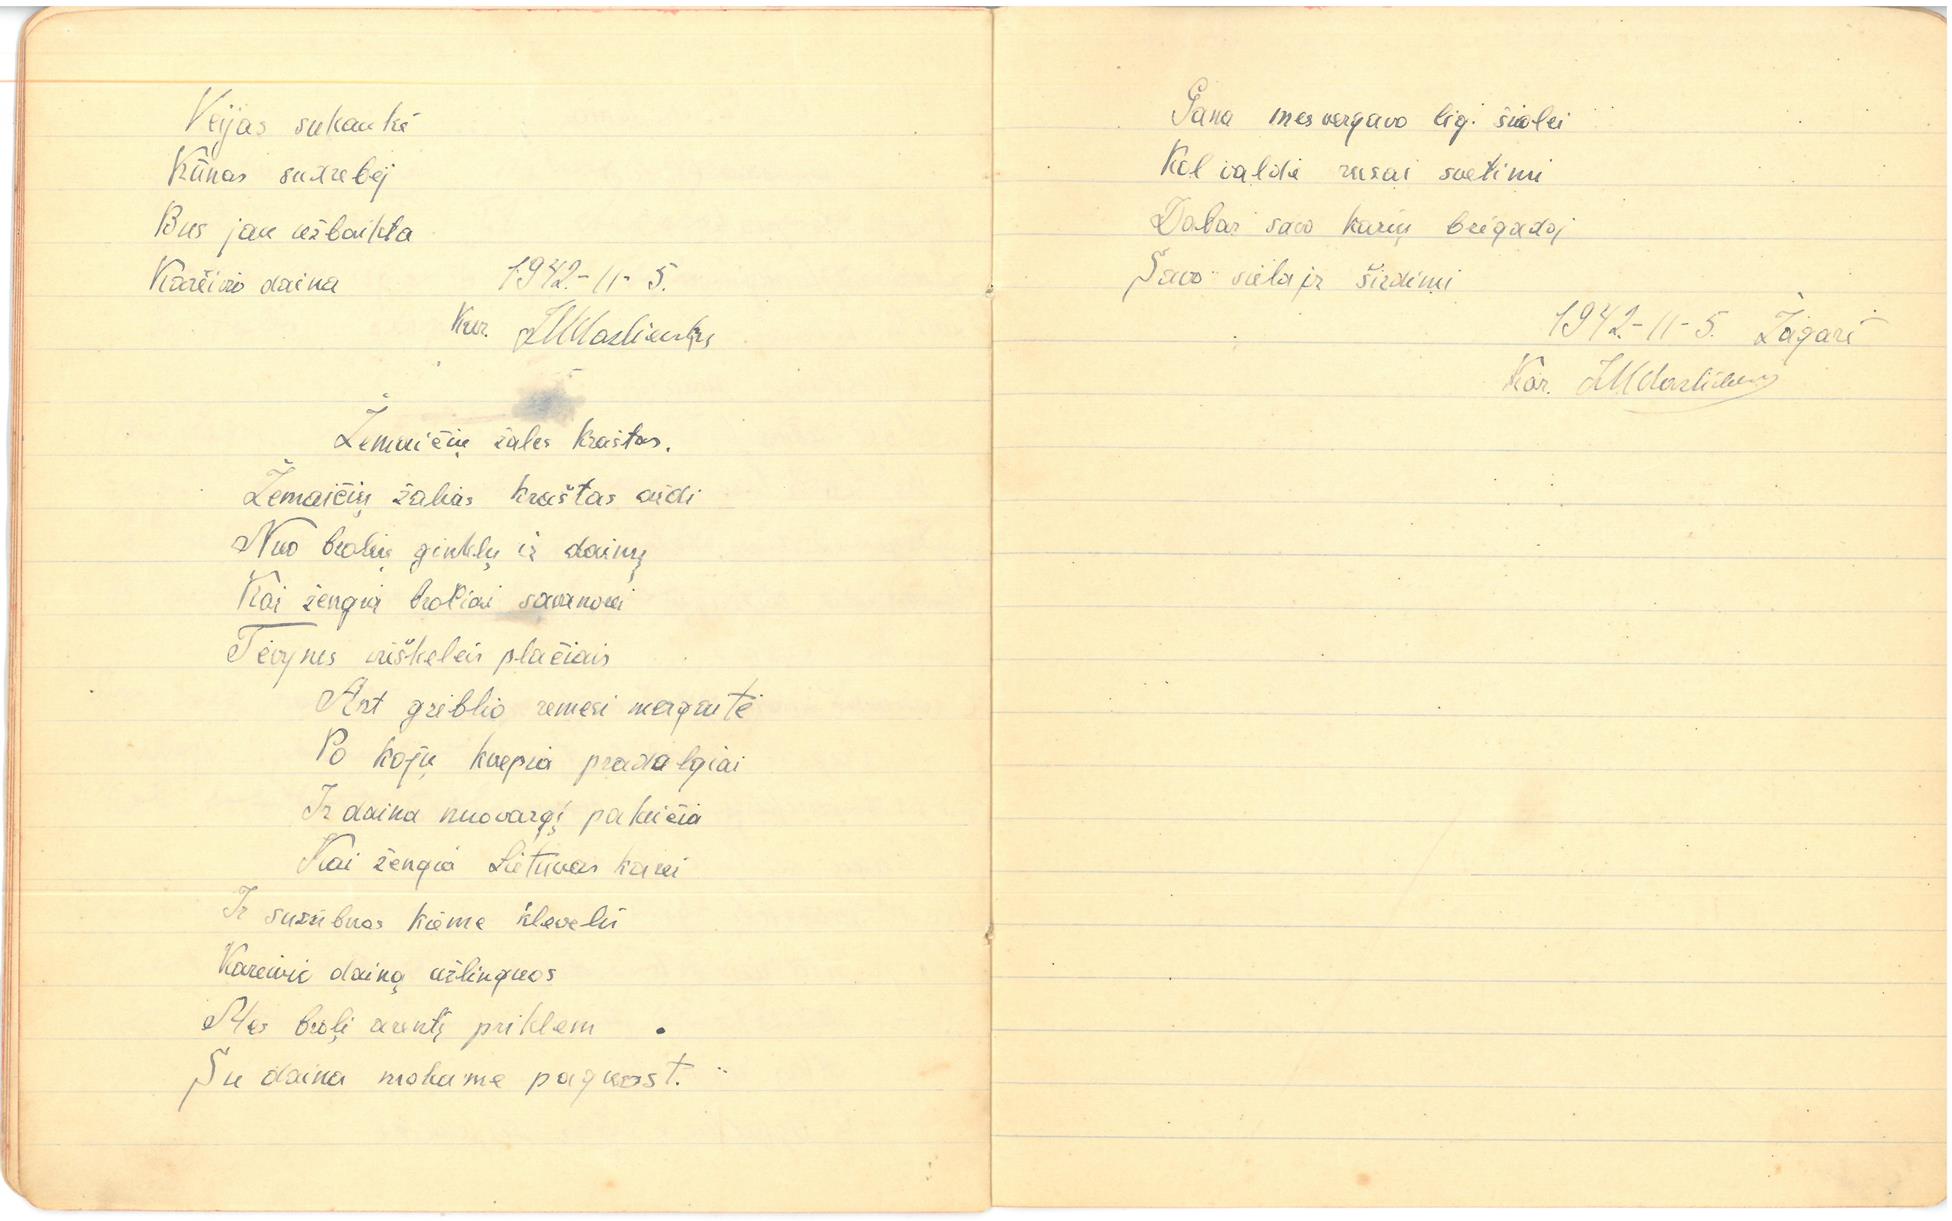 Veijas sukaukė
Kūnas sutrebėj
Bus jau užbaikta
Kareivio daina 1942-11-5.
Kar.
Žemaičių žales kraštas.
Žemaičių žalias kraštas aidi
Nuo brolių ginklų ir dainų
Kai žengia broliai savanorei
Tėvynes vieškeleis plačiais
Ant grėblio remesi mergaitė
Po kojų kvepia pradalgiai
Ir daina nuovargį pakeičia
Kai žengia Lietuvos karei
Ir suziubuos kieme klevelei
Kareivie dainą užlinguos
Mes brolį arentį priklem
Su daina mokame paguost.
Gana mes vergavo ligi šiolei
Kol valdė rusai svetimi
Dabar savo karių brigadoj
Savo siela ir širdimi
1942-11-5. Žagarė
Kar.